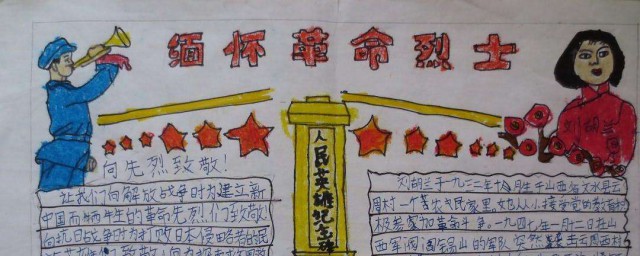 缅怀革命烈士
刘胡兰
人民英雄纪念碑
向先烈致敬!
让我们向解放战争时为建立新
中国而牺牲的革命先烈们致敬
向抗日战争时为打败日本侵略者
刘胡兰于一九三二年十月生于山西省文水县云
周村一个贫农民家里,她从小接受党的教育积
极参加革命斗争。一九四七年一月十二日在山
西军阀阎锡山的军队突然袭击云周西村